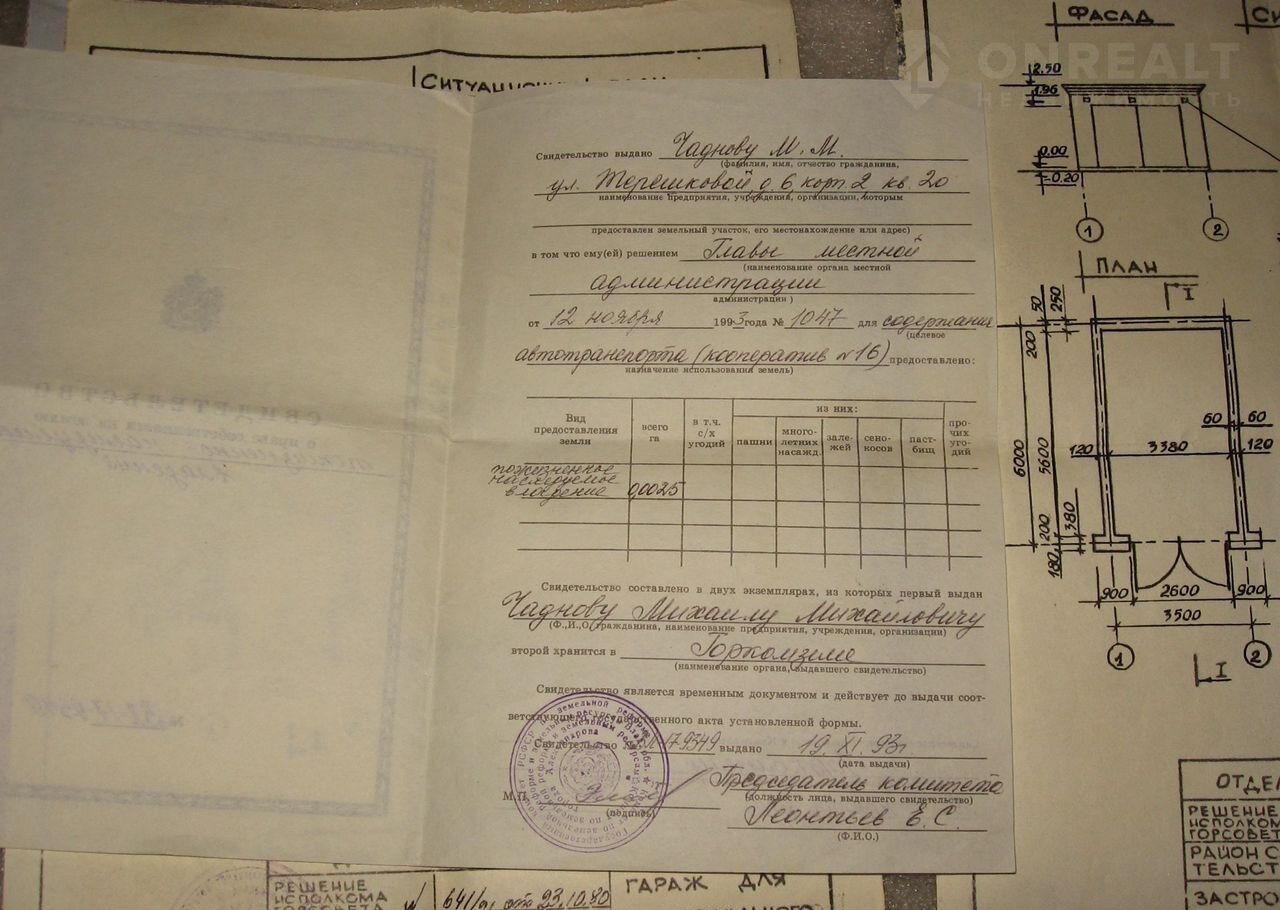 ФАСАД
ONREALT
СИТУАЦИОН
2.50
1.96
0.00
-0.20
1
2
Свидетельство выдано Чаднову М. М.
(фамилия, имя, отчество гражданина,
ул. Терешковой, д. 6, корп. 2, кв. 20
наименование предприятия, учреждения, организации, которым
предоставлен земельный участок, его местонахождение или адрес)
в том что ему(ей) решением Главы местной
(наименование органа местной
администрации
администрации )
от 12 ноября 1993 года № 1047 для содержания
(целевое
автотранспорта (кооператив №16) предоставлено:
назначение использования земель)
Вид предоставления земли
всего га
в т.ч. с/х угодий
из них:
пашни
много-летних насажд.
зале-жей
сено-косов
паст-бищ
про-чих уго-дий
пожизненное
наследуемое
владение 0,0025
Свидетельство составлено в двух экземплярах, из которых первый выдан
Чаднову Михаилу Михайловичу
(Ф.,И.,О, гражданина, наименование предприятия, учреждения, организации)
второй хранится в Горкомземе
(наименование органа, выдавшего свидетельство)
Свидетельство является временным документом и действует до выдачи соот-
ветствующего государственного акта установленной формы.
Свидетельство № 179349 выдано 19. XI. 93г
(дата выдачи)
Председатель комитета
М.П.
(подпись)
(должность лица, выдавшего свидетельство)
Леонтьев Е. С.
(Ф.И.О.)
ПЛАН
I
50
250
200
6000
5600
200
380
180
120
3380
60
60
120
900
2600
900
3500
1
2
I
СВИДЕТЕЛЬСТВО
РЕШЕНИЕ
ИСПОЛКОМА
ГОРСОВЕТА
641/9, от 23.10.80
ГАРАЖ ДЛЯ
ОТДЕЛ
РЕШЕНИЕ
ИСПОЛКОМ
ГОРСОВЕТ
РАЙОН С
ТЕЛЬСТ
ЗАСТРО